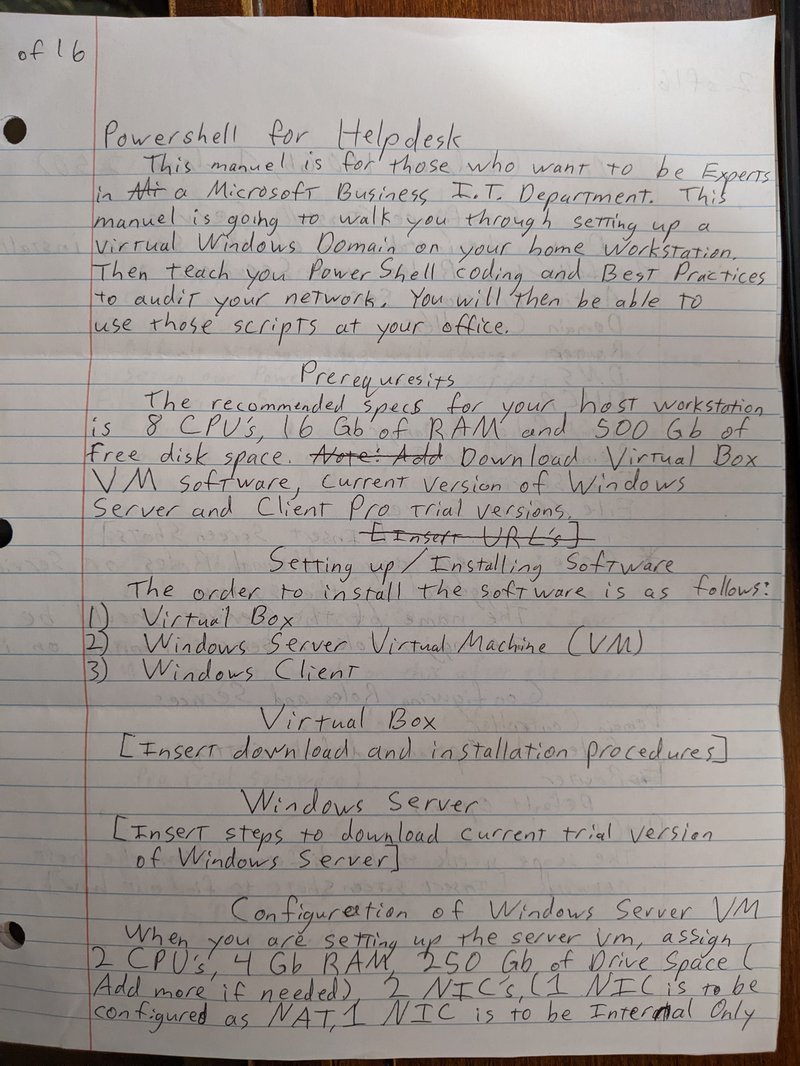 of 16
Powershell for Helpdesk
This manuel is for those who want to be Experts
in a Microsoft Business I.T. Department. This
manuel is going to walk you through setting up a
Virtual Windows Domain on your home workstation.
Then teach you PowerShell coding and Best Practices
to audit your network. You will then be able to
use those scripts at your office.
Prerequresits
The recommended specs for your host workstation
is 8 CPU's, 16 Gb of RAM and 500 Gb of
free disk space. Note: Add Download Virtual Box
VM software, current version of Windows
Server and Client Pro trial versions.
[Insert URL's]
Setting up/Installing Software
The order to install the software is as follows:
1) Virtual Box
2) Windows Server Virtual Machine (VM)
3) Windows Client
Virtual Box
[Insert download and installation procedures]
Windows Server
[Insert steps to download current trial version
of Windows Server]
Configuration of Windows Server VM
When you are setting up the server vm, assign
2 CPU's, 4 Gb RAM, 250 Gb of Drive Space (
Add more if needed) 2 NIC's, (1 NIC is to be
configured as NAT, 1 NIC is to be Internal Only